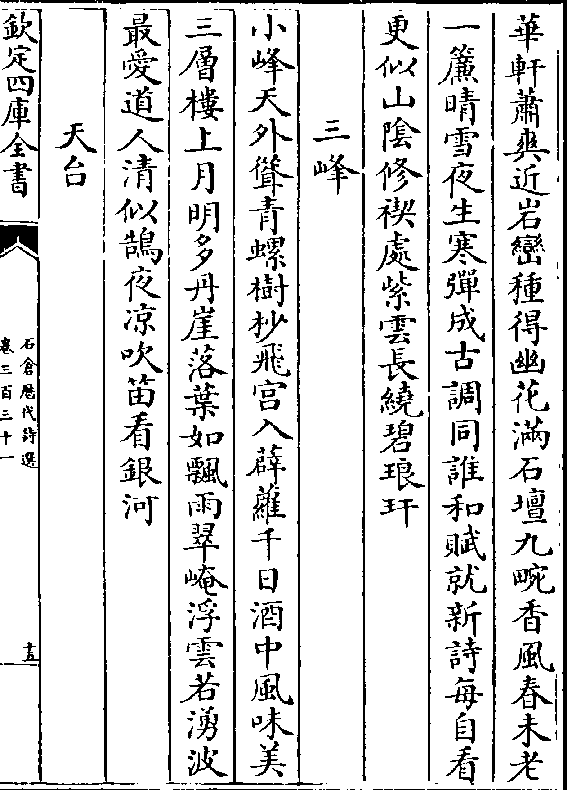 華軒蕭爽近岩巒種得幽花滿石壇九畹香風春未老
一簾晴雪夜生寒彈成古調同誰和賦就新詩每自看
更似山陰修禊處紫雲長繞碧琅玕
三峰
小峰天外聳青螺樹杪飛宫入薜蘿千日酒中風味美
三層樓上月明多丹崖落葉如飄雨翠崦浮雲若湧波
最愛道人清似鵠夜凉吹笛看銀河
天台
欽定四庫全書
石倉歴代詩選
卷三百三十一
十五